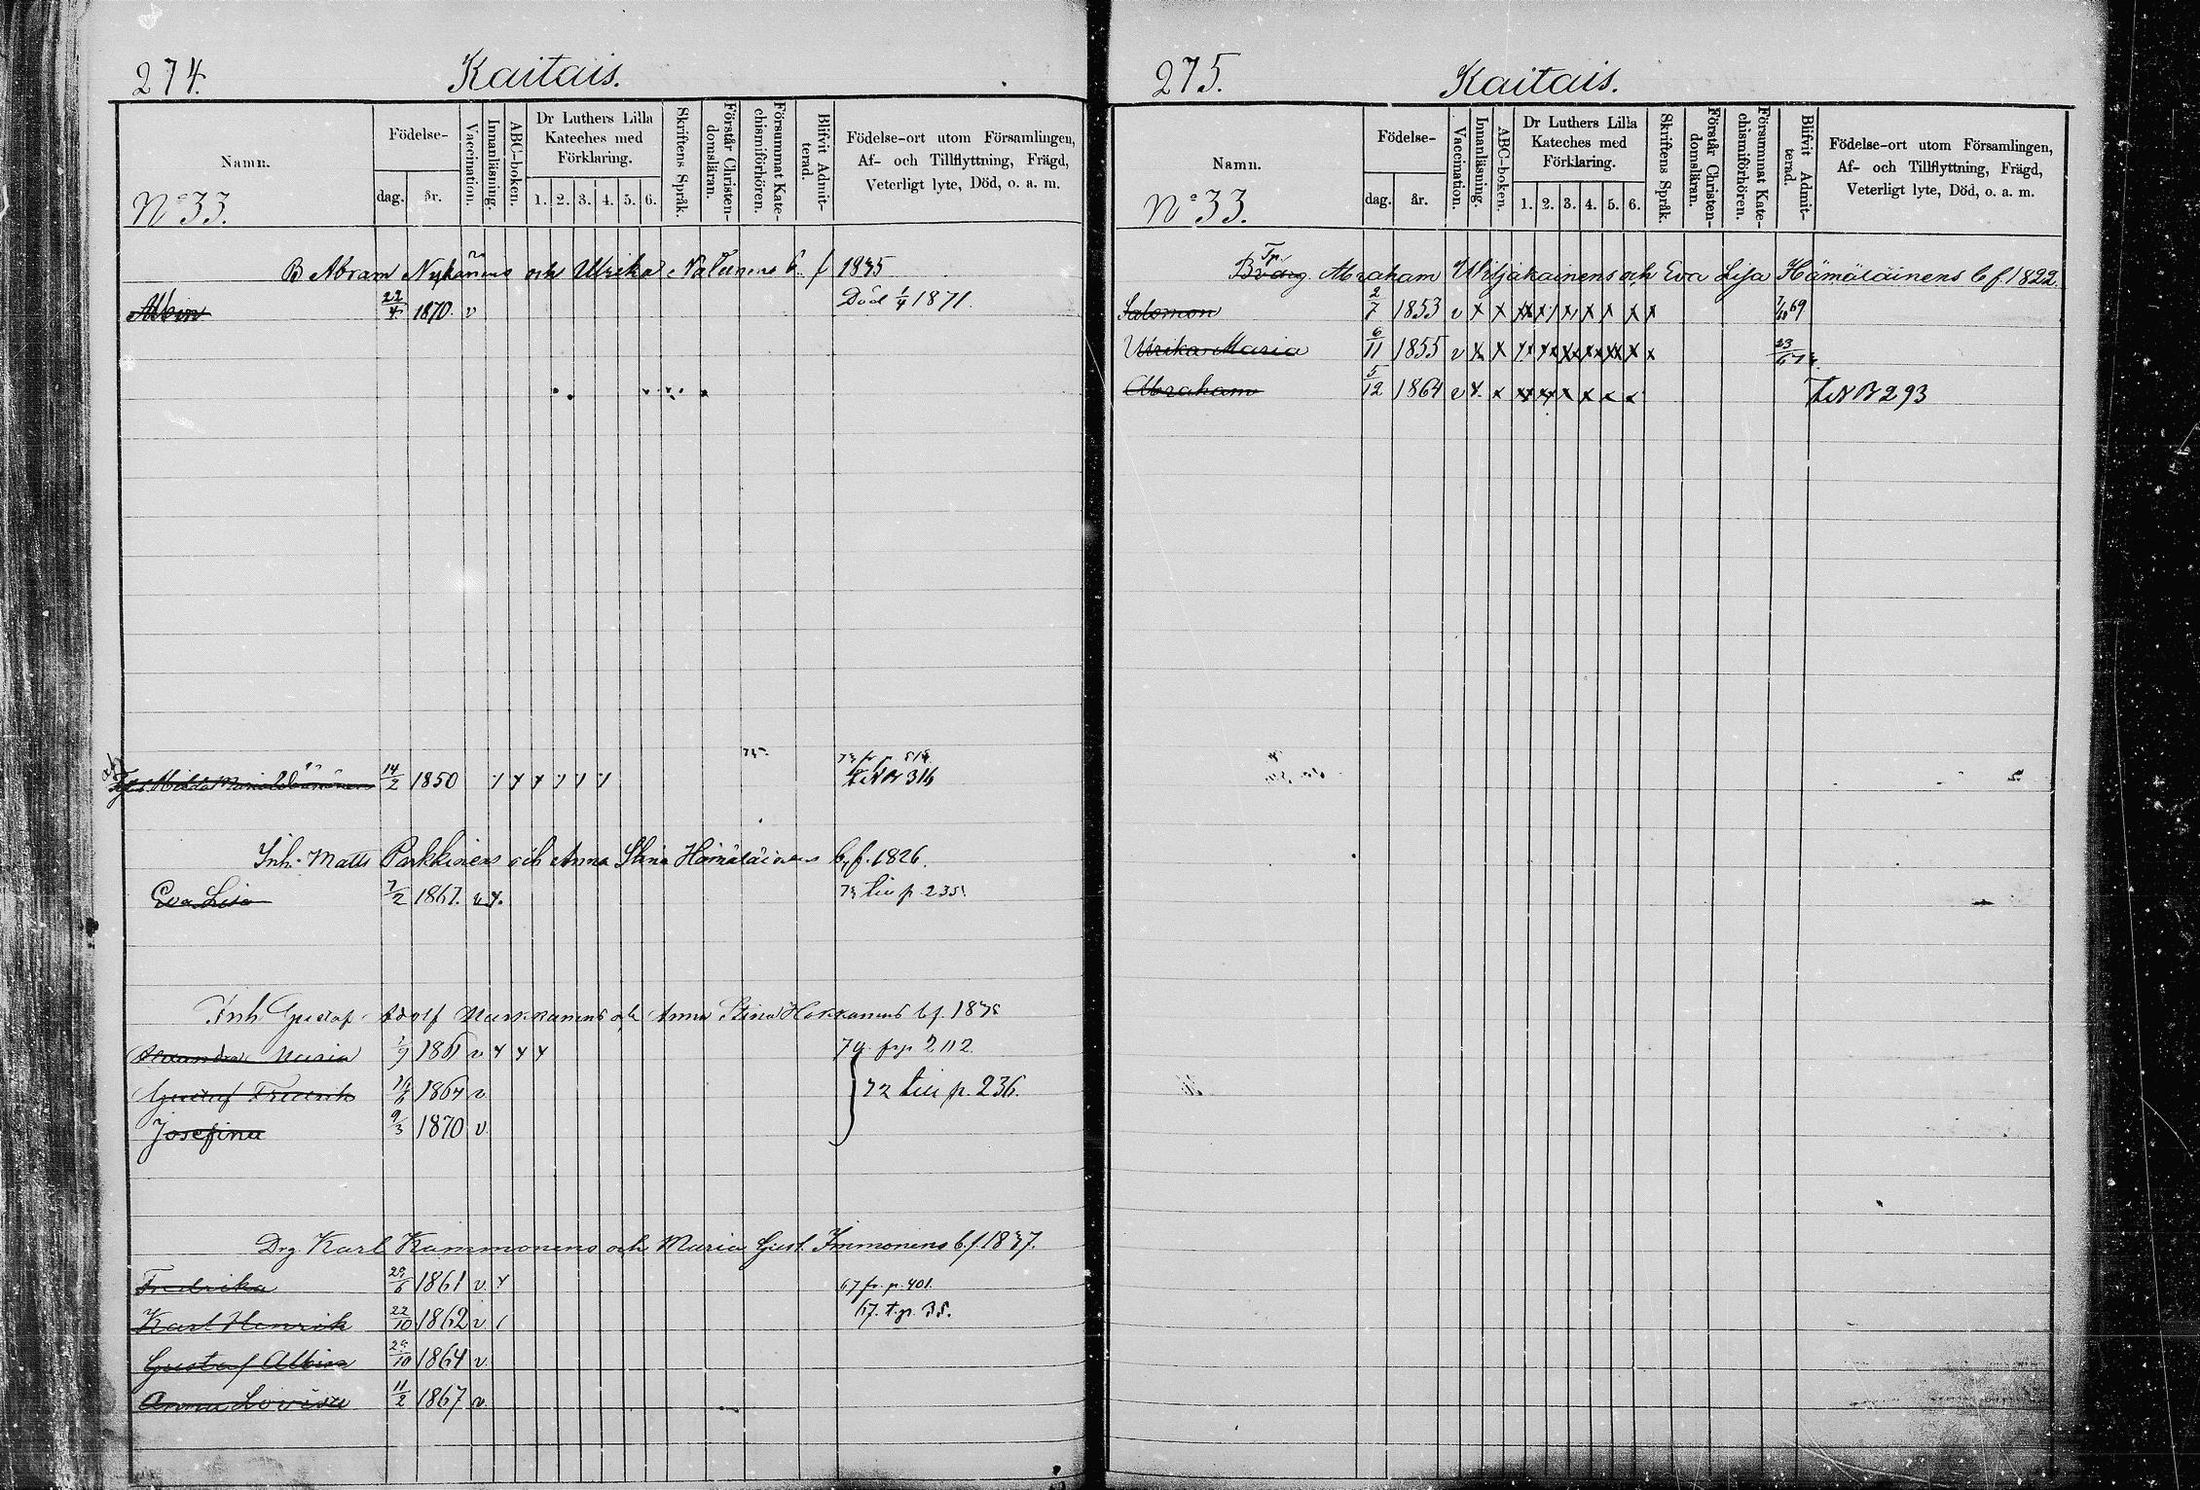 274.
Kaitais.
Namn.
Födelse-
dag.
år.
Vaccination.
Innanläsning.
ABC-boken.
Dr Luthers Lilla
Kateches med
Förklaring.
1. 2. 3. 4. 5. 6.
Skriftens Språk.
Förstår Christen-
domsläran.
Försummat Kate-
chismiförhören.
Blifvit Admit-
terad.
Födelse-ort utom Församlingen,
Af- och Tillflyttning, Frägd,
Veterligt lyte, Död, o. a. m.
No 33.
B Abram Nykänens och Ulrika b f 1835
Albin 22/4 1870. v Död 1/4 1871.
73 fr p
14/2 1850
Inh. Matts Parkkinens och Anna Stina Hämäläinens b. f. 1826.
Eva Lisa 7/2 1867. v x. 73 till p. 235
Inh Gustaf Adolf och Anna Stina Hakkanens b f.
Maria 1861 v x x x
Gustaf Fredrik 1864 v } 72 till p. 236.
Josefina 9/3 1870 v
Drg. Karl Kammonens och Maria Gust. Immonens b. f. 1837.
Fredrika 29/6 1861 v x 67 fr. p. 401.
Karl Henrik 22/10 1862 v 67. t. p. 35.
Gustaf Albin 29/10 1864 v
Anna Lovisa 11/2 1867 v
275.
Kaitais.
Namn.
Födelse-
dag.
år.
Vaccination.
Innanläsning.
ABC-boken.
Dr Luthers Lilla
Kateches med
Förklaring.
1. 2. 3. 4. 5. 6.
Skriftens Språk.
Förstår Christen-
domsläran.
Försummat Kate-
chismiförhören.
Blifvit Admit-
terad.
Födelse-ort utom Församlingen,
Af- och Tillflyttning, Frägd,
Veterligt lyte, Död, o. a. m.
No 33.
Abraham Wiljakainens och Eva Lisa Hämäläinens b f. 1822.
Salomon 2/7 1853 v x x x x x x x x x 69
Ulrika Maria 6/11 1855 v x x x x x x x x x
Abraham 5/12 1864 v x x x x x x x x 293